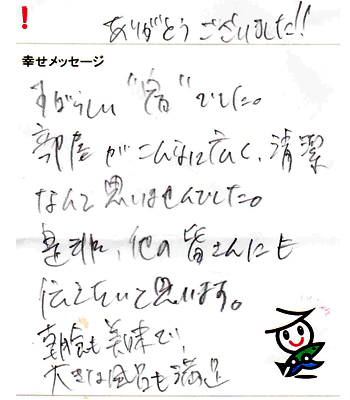 !
ありがとうございました!!
幸せメッセージ
すばらしい"宿"でした。
部屋がこんなに広く、清潔
なんて思いませんでした。
是非、他の皆さんにも
伝えたいと思います。
朝食も美味で、
大きな風呂も満足